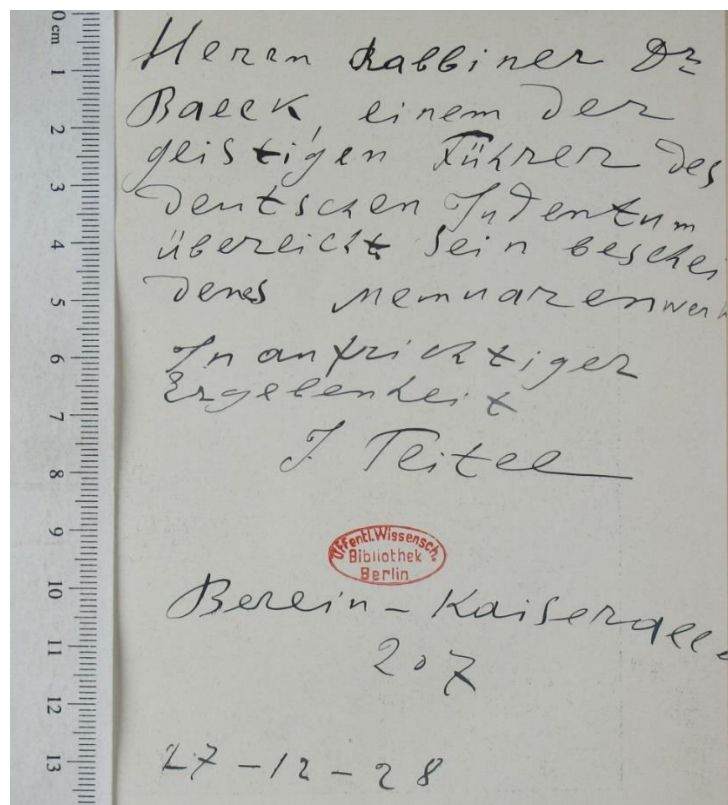 Herrn Rabbiner Dr
Baeck, einem der
geistigen Führer des
deutschen Judentum
übereicht sein beschei
denes Memuarenwerk
In aufrichtiger
Ergebenheit
J. Teitel
Öffentl. Wissensch.
Bibliothek
Berlin
Berlin - Kaiserallee
207
27-12-28
0 cm
1
2
3
4
5
6
7
8
9
10
11
12
13